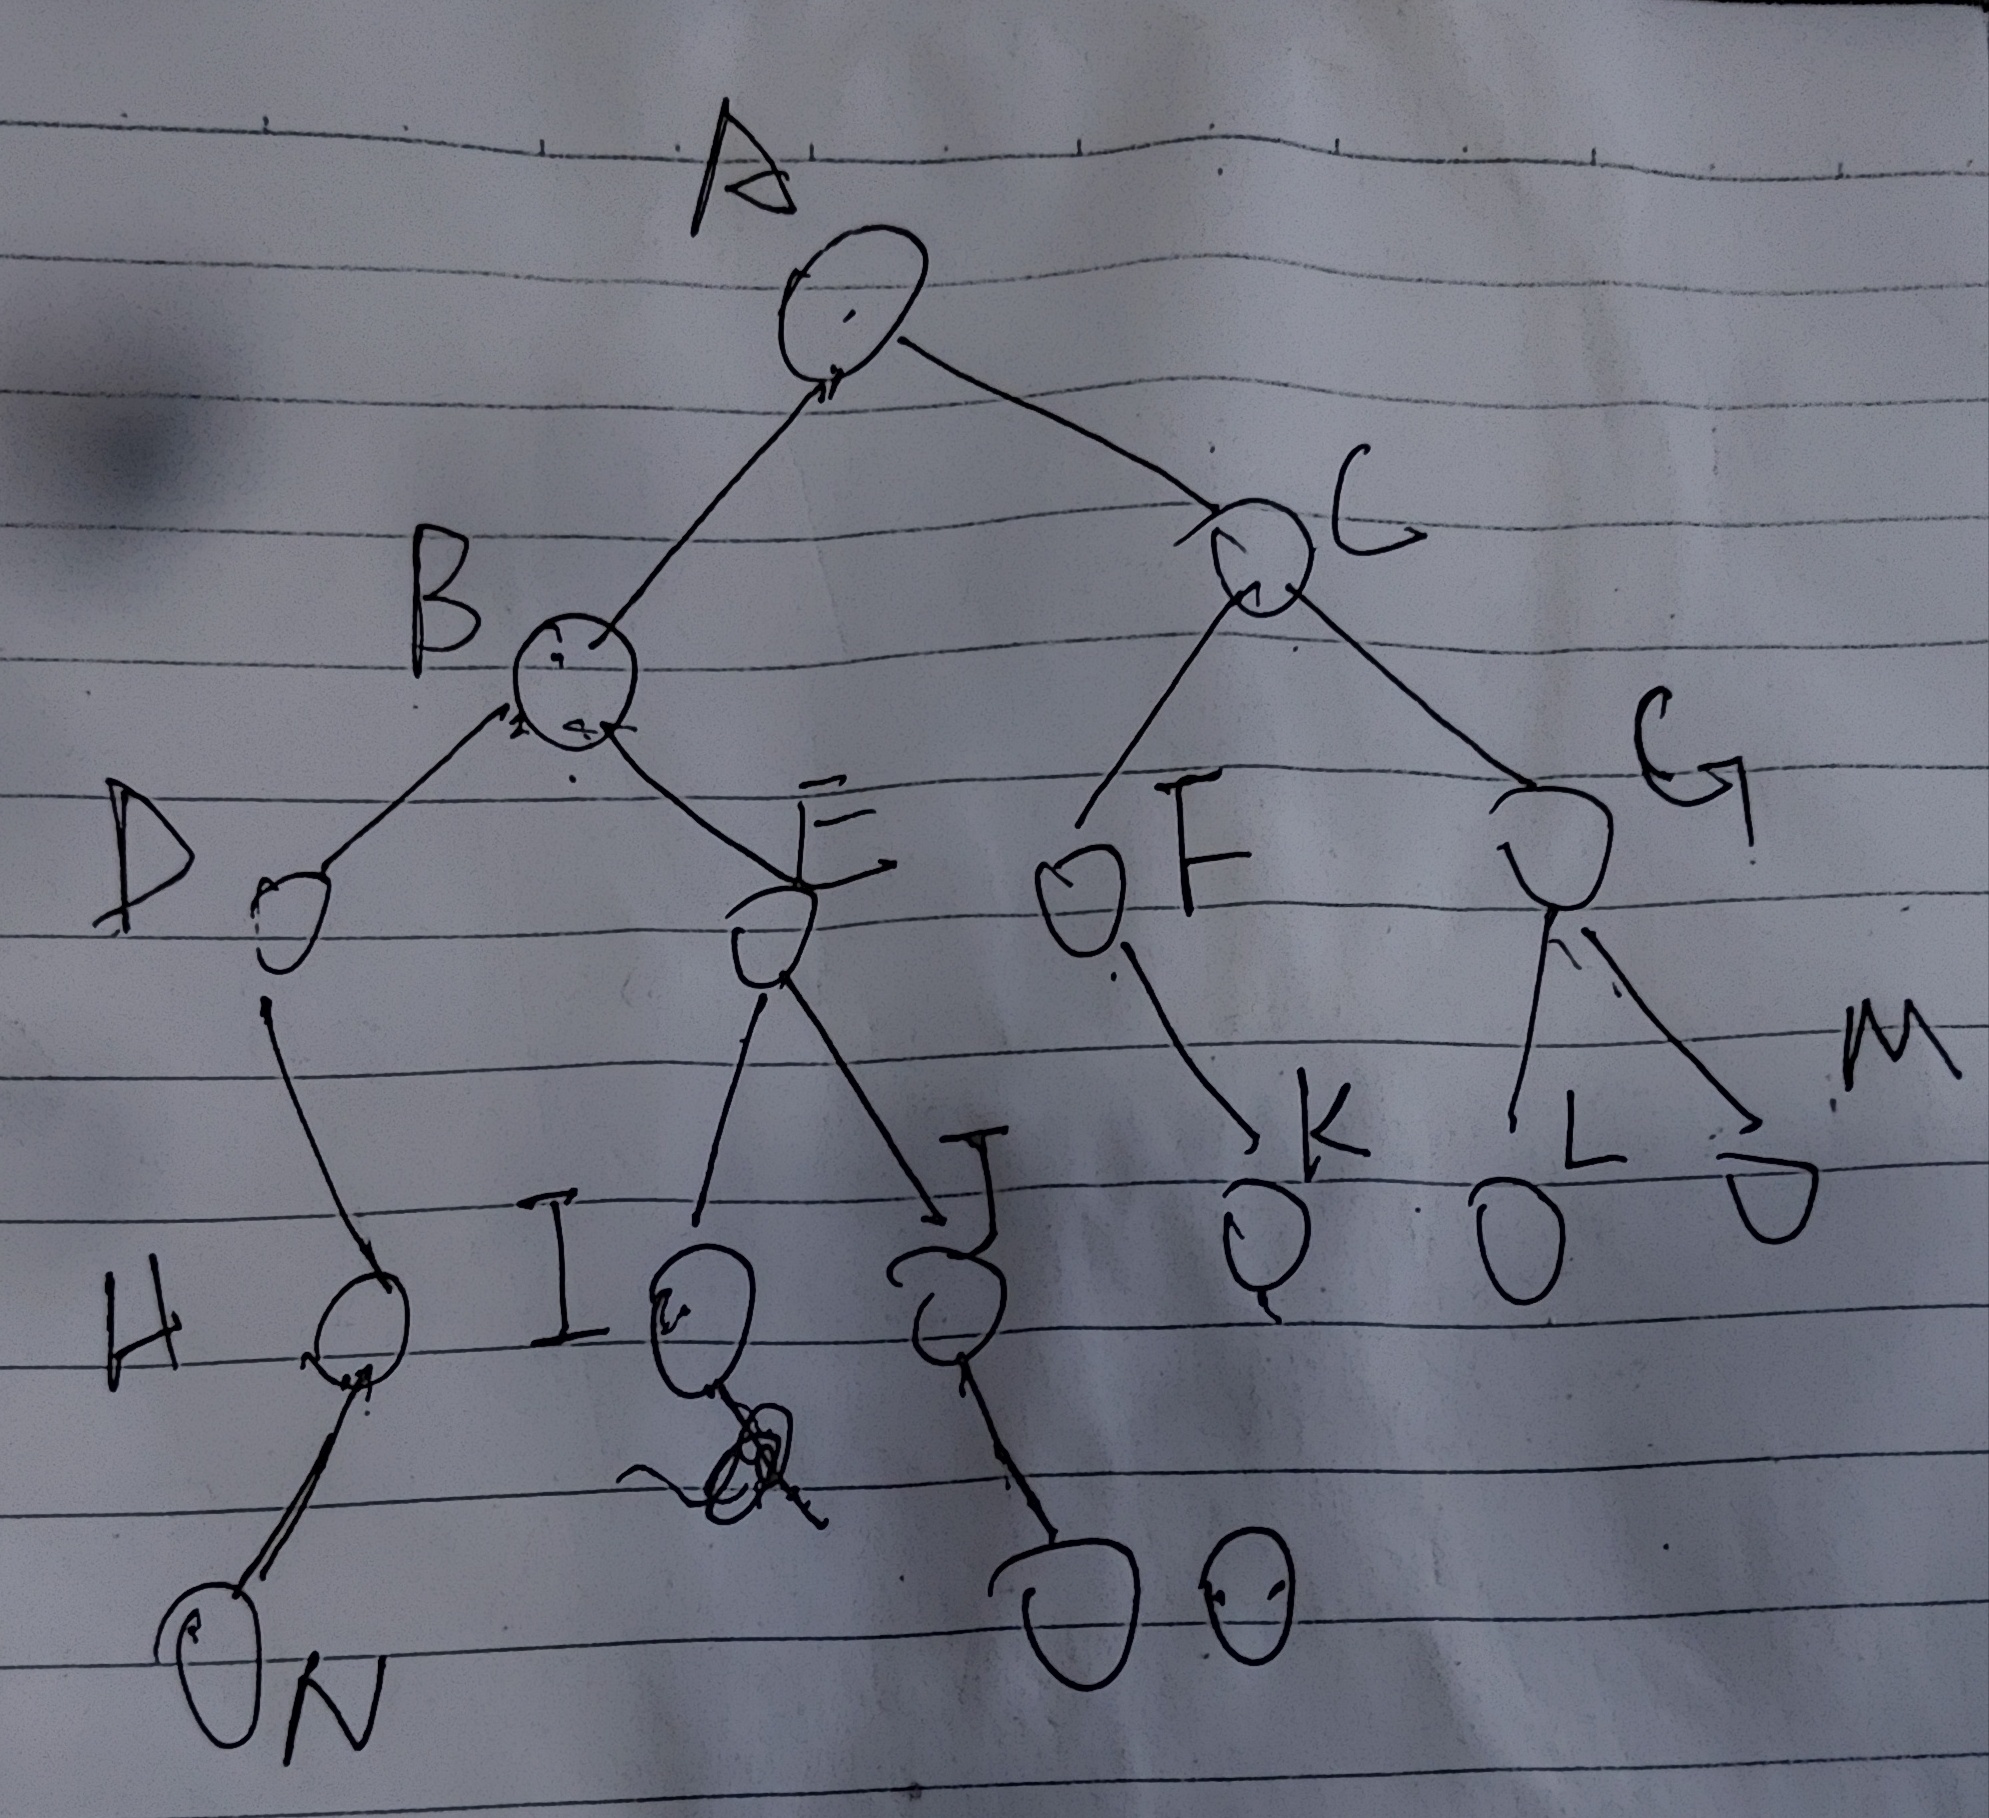 A
B C
D E F G
H I J K L M
N O